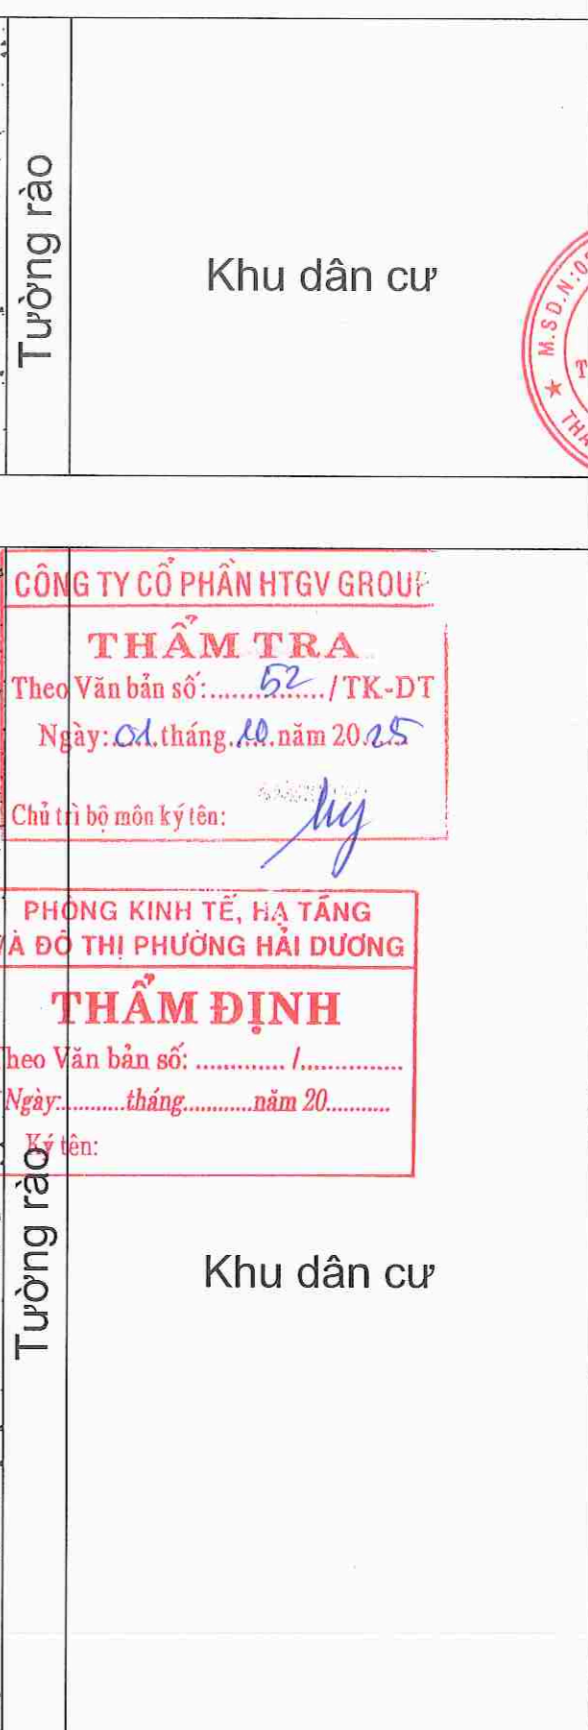 Tường rào
Khu dân cư
M.S.D.N:0
THA
CÔNG TY CỔ PHẦN HTGV GROUP
THẨM TRA
Theo Văn bản số:.......52....../TK-DT
Ngày:.01.tháng.10.năm 20.25
Chủ trì bộ môn ký tên:
PHÒNG KINH TẾ, HẠ TẦNG
VÀ ĐÔ THỊ PHƯỜNG HẢI DƯƠNG
THẨM ĐỊNH
Theo Văn bản số: ............. /...............
Ngày:...........tháng............năm 20...........
Ký tên:
Tường rào
Khu dân cư